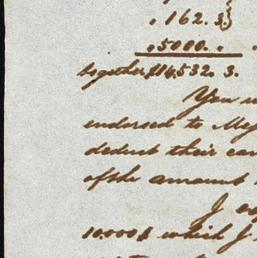 " 162. 3.}
" 5000. "
together $14,532. 3.
You
endorsed to Mess
deduct their
of the amount
I
10.000$ which I